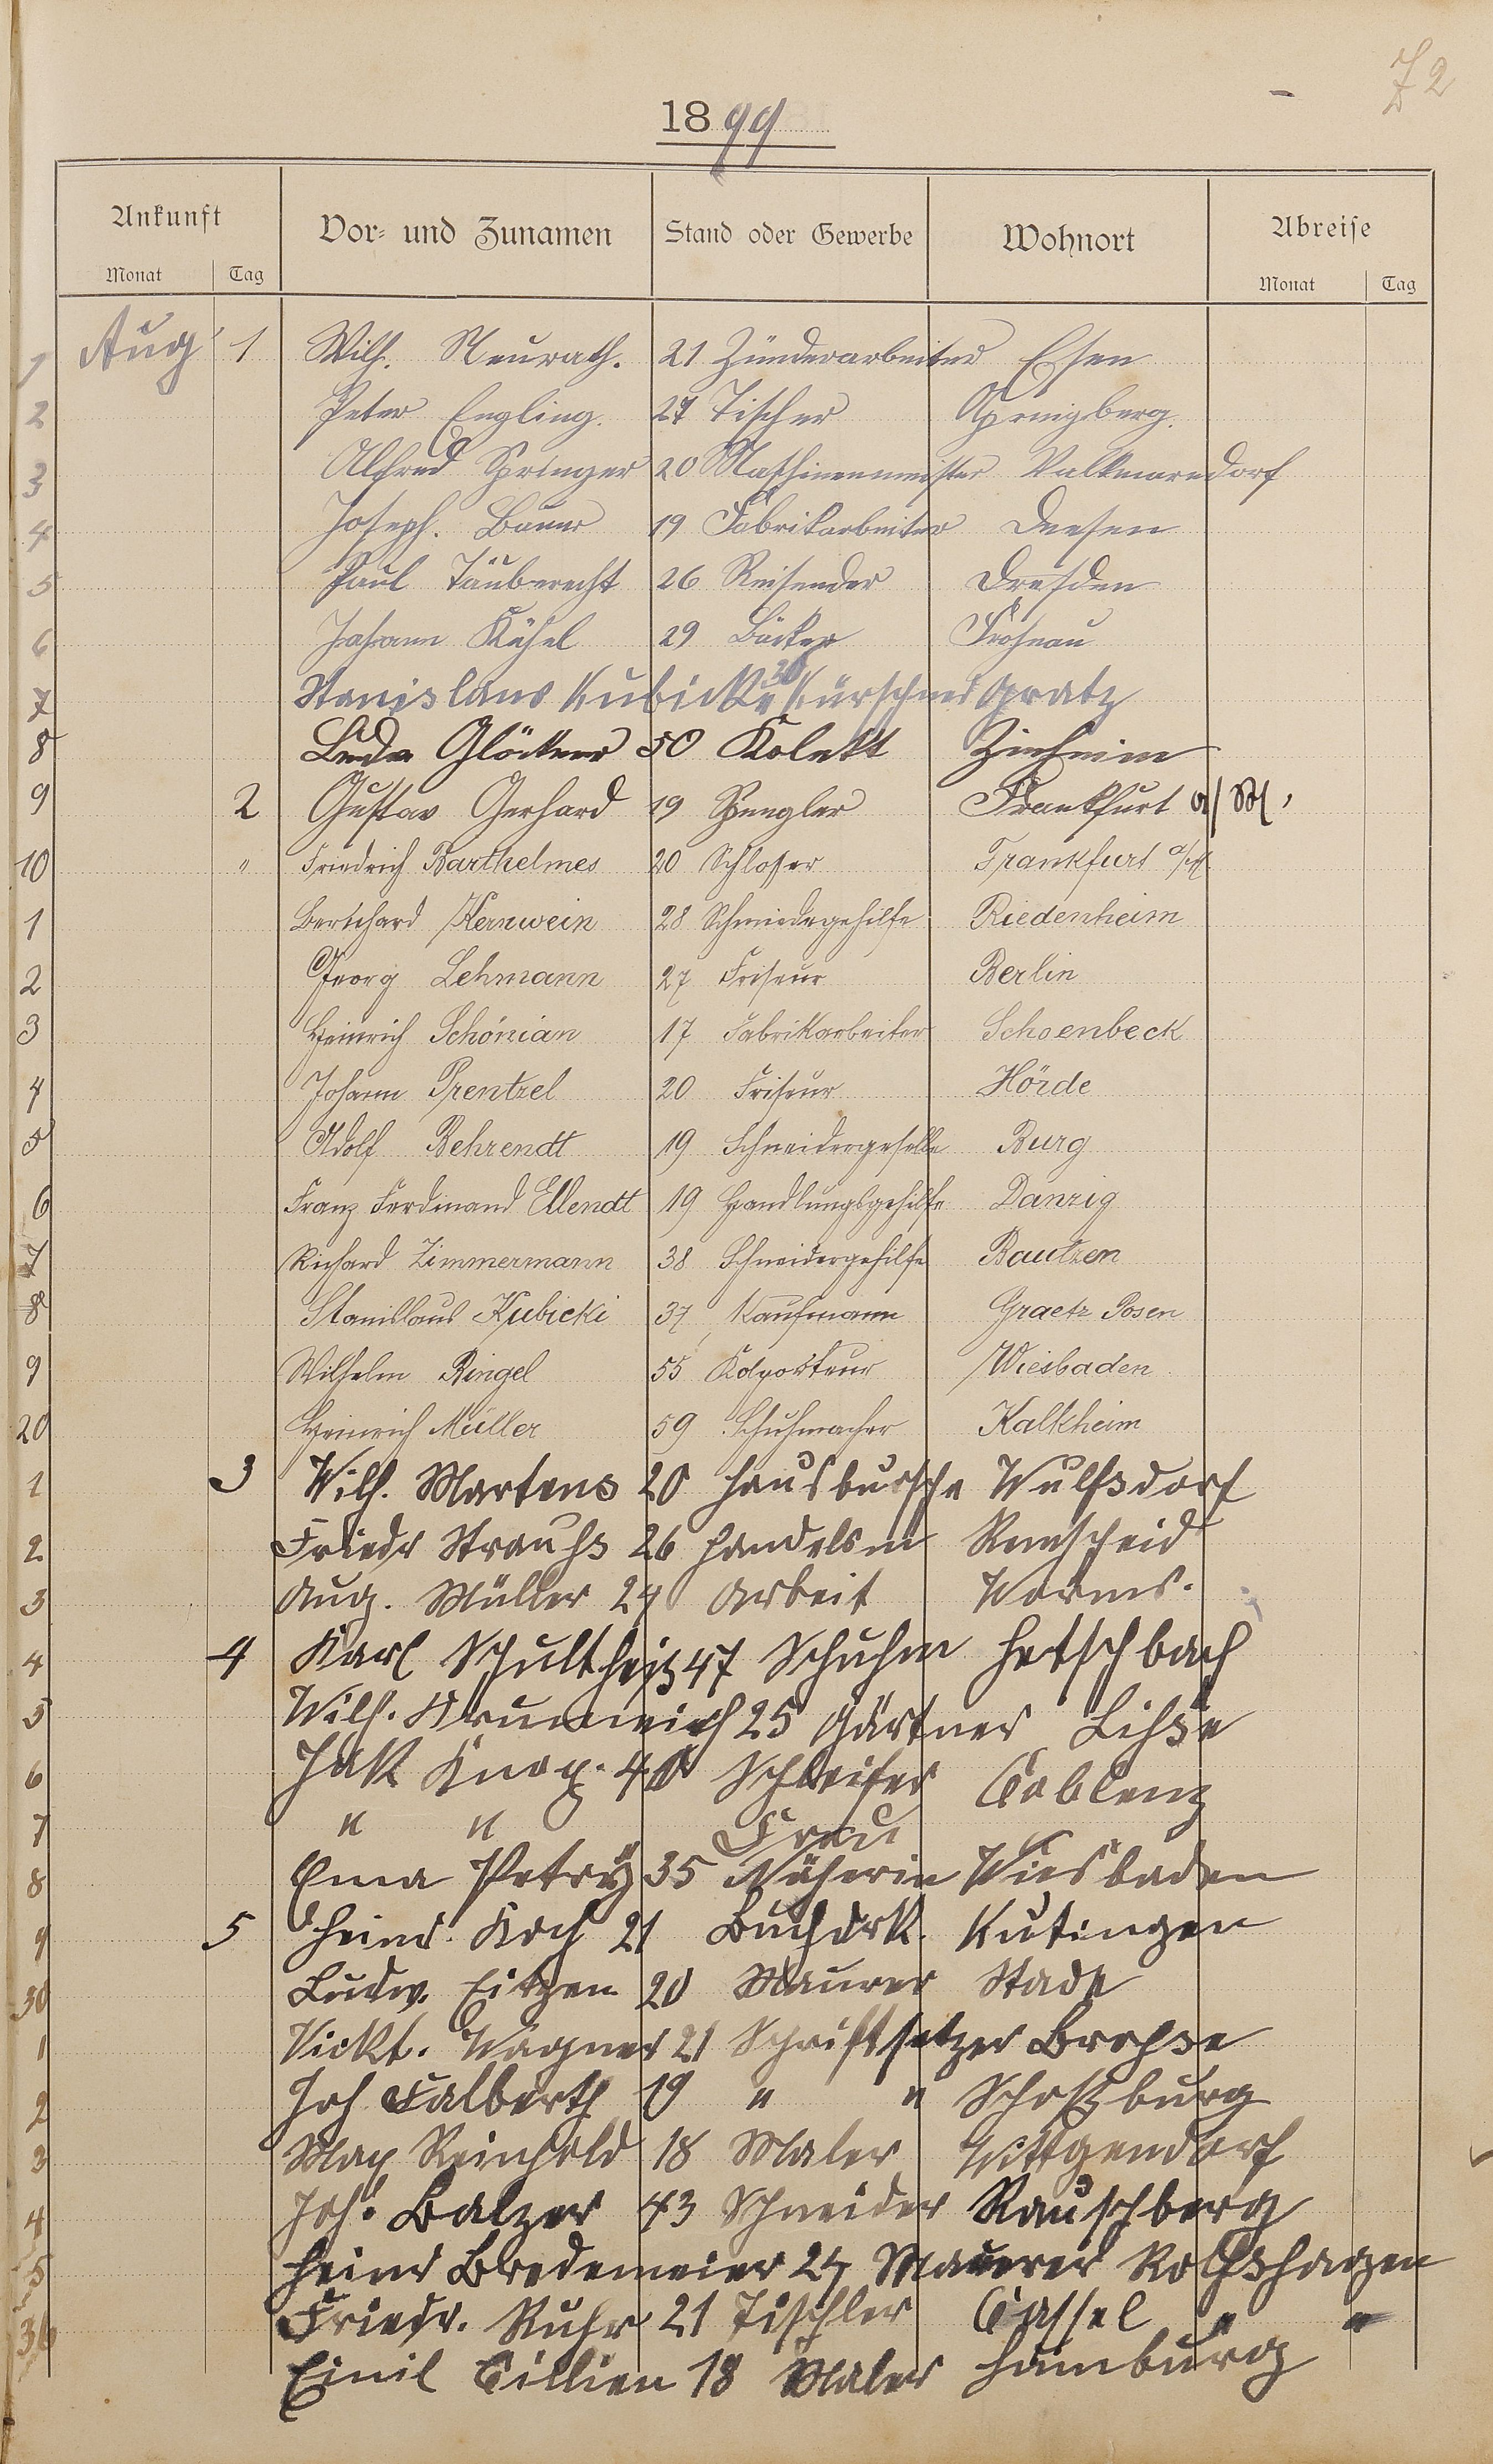 72
1899
Ankunft Vor- und Zunamen Stand oder Gewerbe Wohnort Abreise
Monat Tag Monat Tag
1 Aug 1 Wilh. Neurath. 21 Zünderarbeiter Essen
2 Peter Engling. 27 Tischer
3 Alfred Springer 20 Maschinenmeister Volkmarsdorf
4 Joseph. Bauer 19 Fabrikarbeiter Deesen
5 Paul Täuberecht 26 Reisender Dresden
6 Johann Kähel 29 Bäcker Frohnau
7 Stanislaus Kubicke 36 Kürschner Gratz
8 Glöckner 50 Kolekt
9 2 Gustav Gerhard 19 Spengler Frankfurt a/M,
10 " Friedrich Barthelmes 20 Schlosser Frankfurt a/M.
1 Bernhard Kernwein 28 Schmiedegehilfe Riedenheim
2 Georg Lehmann 27 Friseur Berlin
3 Heinrich Schönian 17 Fabrikarbeiter Schoenbeck
4 Johann Prentzel 20 Friseur Hörde
5 Adolf Behrendt 19 Schneidergeselle Burg
6 Franz Ferdinand Ellendt 19 Handlungsgehilfe Danzig
7 Richard Zimmermann 38 Schneidergehilfe Bautzen
8 Stanislaus Kubicki 37 Kaufmann Graetz Posen
9 Wilhelm Ringel 55 Kolporteur Wiesbaden
20 Heinrich Müller 59 Schuhmacher Kalkheim
1 3 Wilh. Martens 20 Hausbursche Wulfsdorf
2 Friedr Strauhs 26 Handelsm Remscheid
3 Aug. Müller 24 Arbeit Worms.
4 4 Karl Schultheiß 47 Schuhm Hetschbach
5 Wilh. Krummeich 25 Gärtner Lihse
6 Jak Knop. 40 Schleifer Coblenz
7 " " Frau
8 Ema Petry 35 Näherin Wiesbaden
9 5 Heinr. Koch 21 Buchdrk. Kutingen
30 Ludw. Eitzen 20 Maurer Stade
1 Vickt. Wagner 21 Schriftsetzer
2 Joh Falberth 19 " " Schäßburg
3 Max Reinhold 18 Maler Wittgendorf
4 Joh. Balzer 43 Schneider Rauschberg
5 Heinr Bredemeier 24 Maurer Rolfshagen
36 Friedr. Ruhr 21 Tischler Cassel " "
Emil Cillien 18 Maler Hamburg